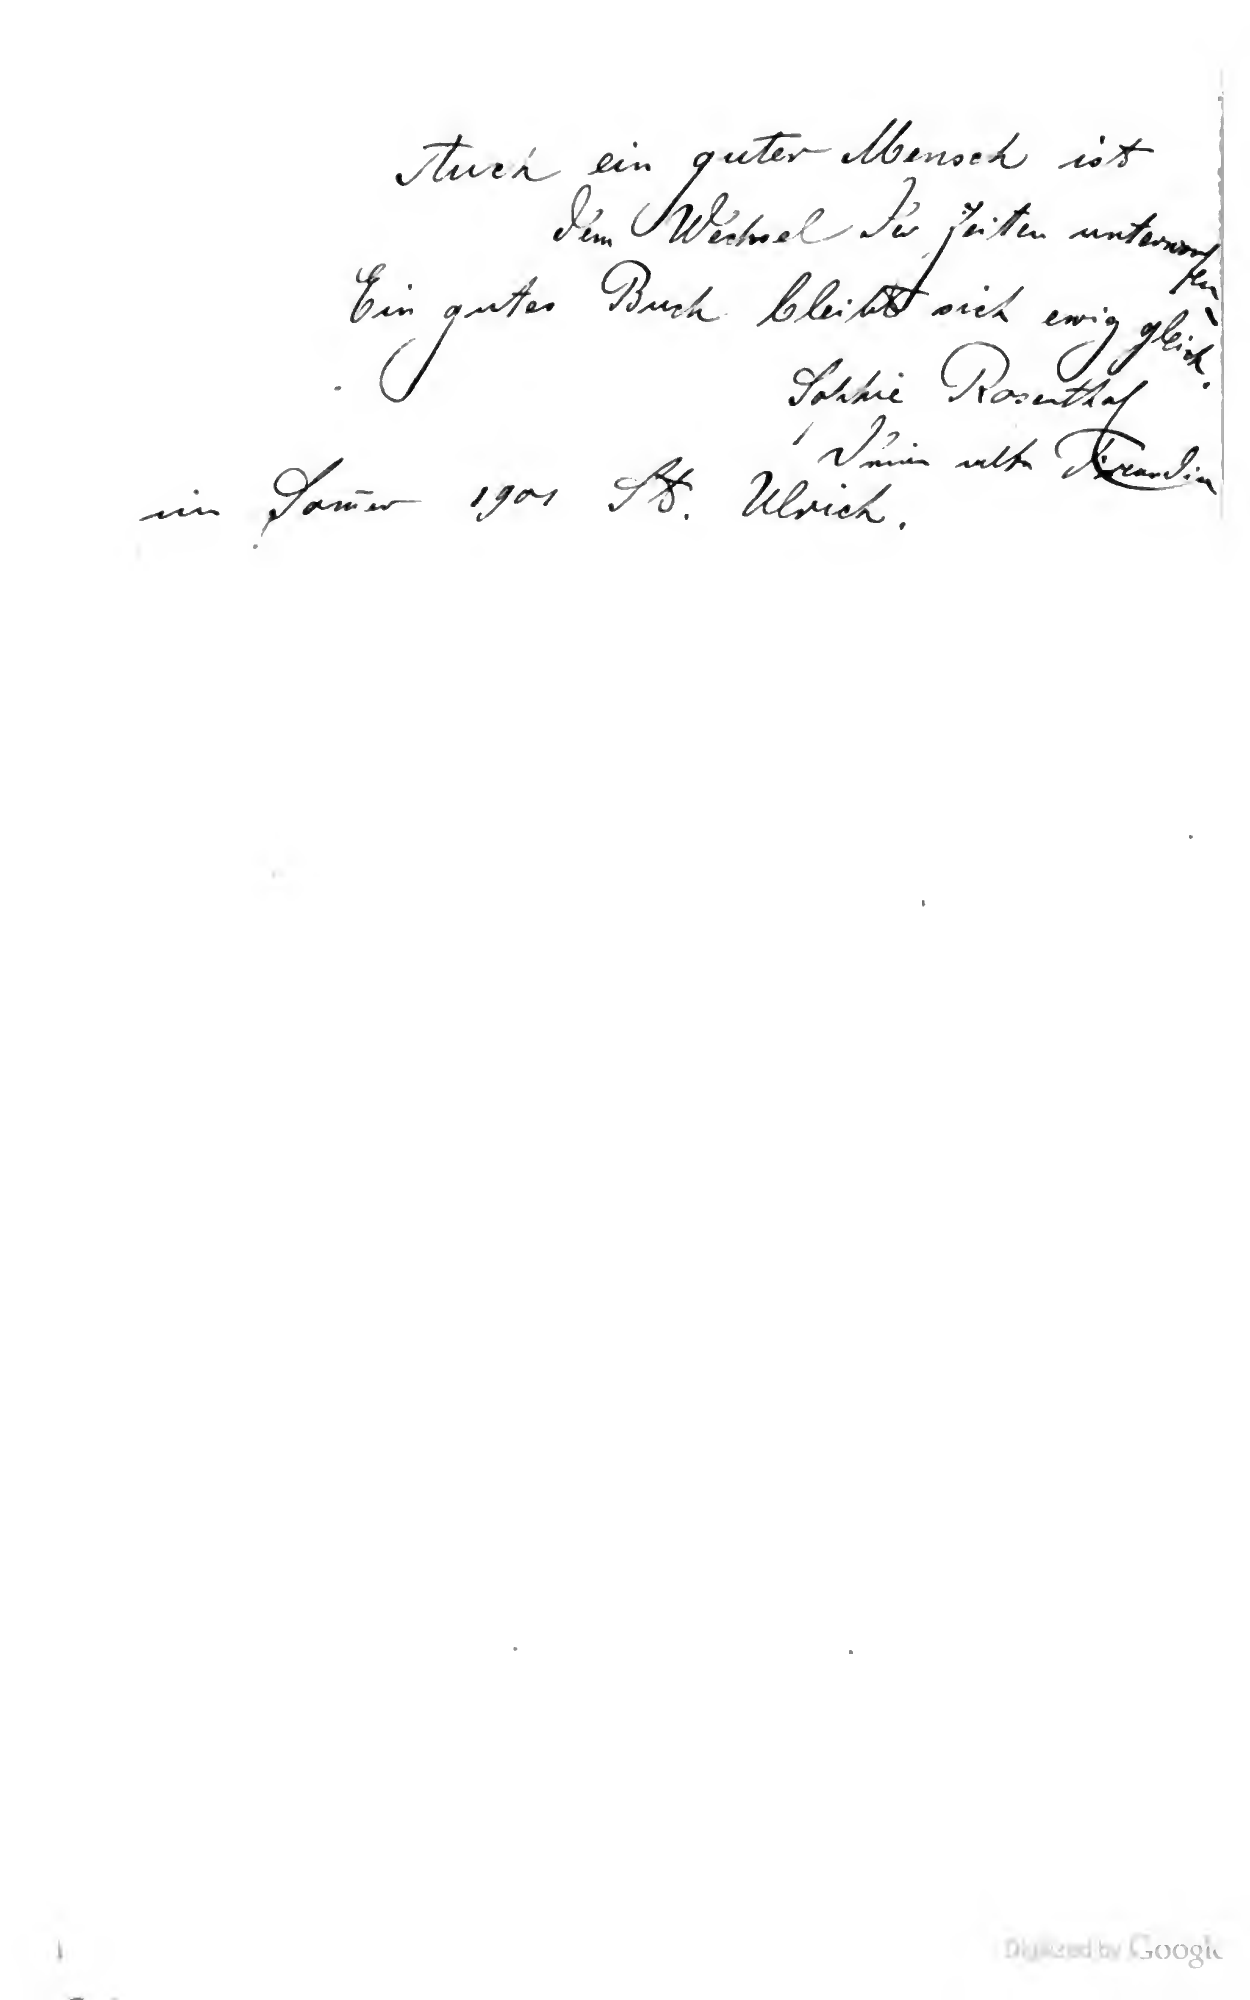 Auch ein guter Mensch ist
dem Wechsel der Zeiten unterworfen
Ein gutes Buch bleibt sich ewig gleich.
Sophie Rosenthal
Deine alte Freundin
im Som̄er 1901 St. Ulrich.
Digitized by Google